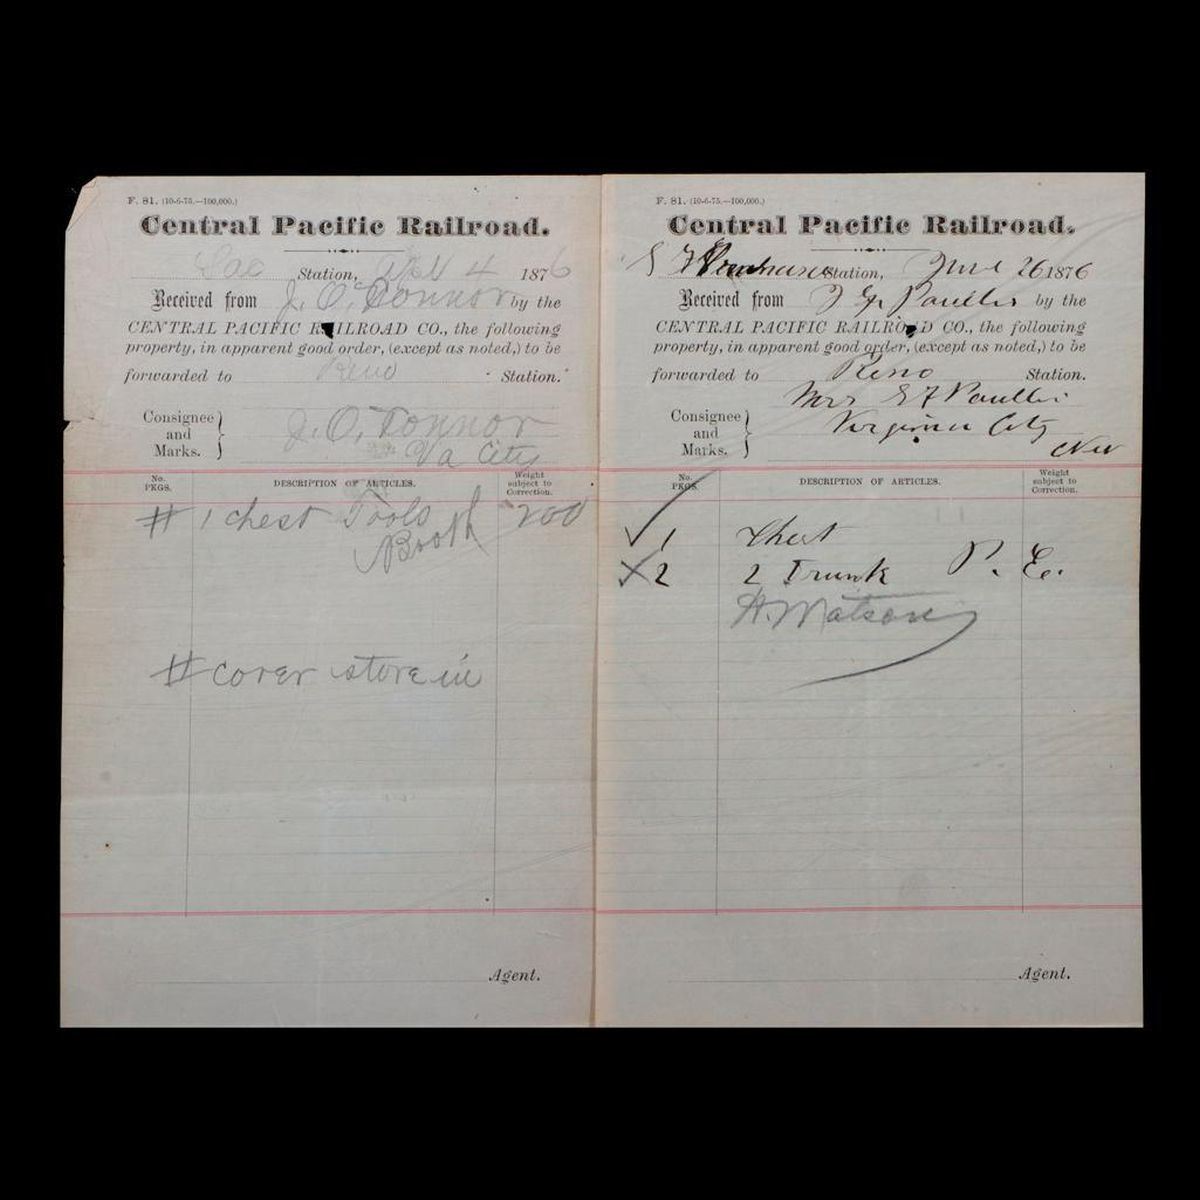 F. 81. (10-6-75.—100,000.)
Central Pacific Railroad.
Sac Station, Apl 4 1876
Received from J. O'Connor by the
CENTRAL PACIFIC RAILROAD CO., the following
property, in apparent good order, (except as noted,) to be
forwarded to Reno Station.
Consignee
and
Marks.
J. O'Connor
Va City
No.
PKGS.
DESCRIPTION OF ARTICLES.
Weight
subject to
Correction.
# 1 chest Tools 200
Booth
# cover store in
Agent.
F. 81. (10-6-75.—100,000.)
Central Pacific Railroad.
S F Station, June 26 1876
Received from by the
CENTRAL PACIFIC RAILROAD CO., the following
property, in apparent good order, (except as noted,) to be
forwarded to Reno Station.
Mrs
Consignee
and
Marks.
Virginia City
Nev
No.
PKGS.
DESCRIPTION OF ARTICLES.
Weight
subject to
Correction.
1 Chest
2 2 Trunk P. E.
H. Matson
Agent.